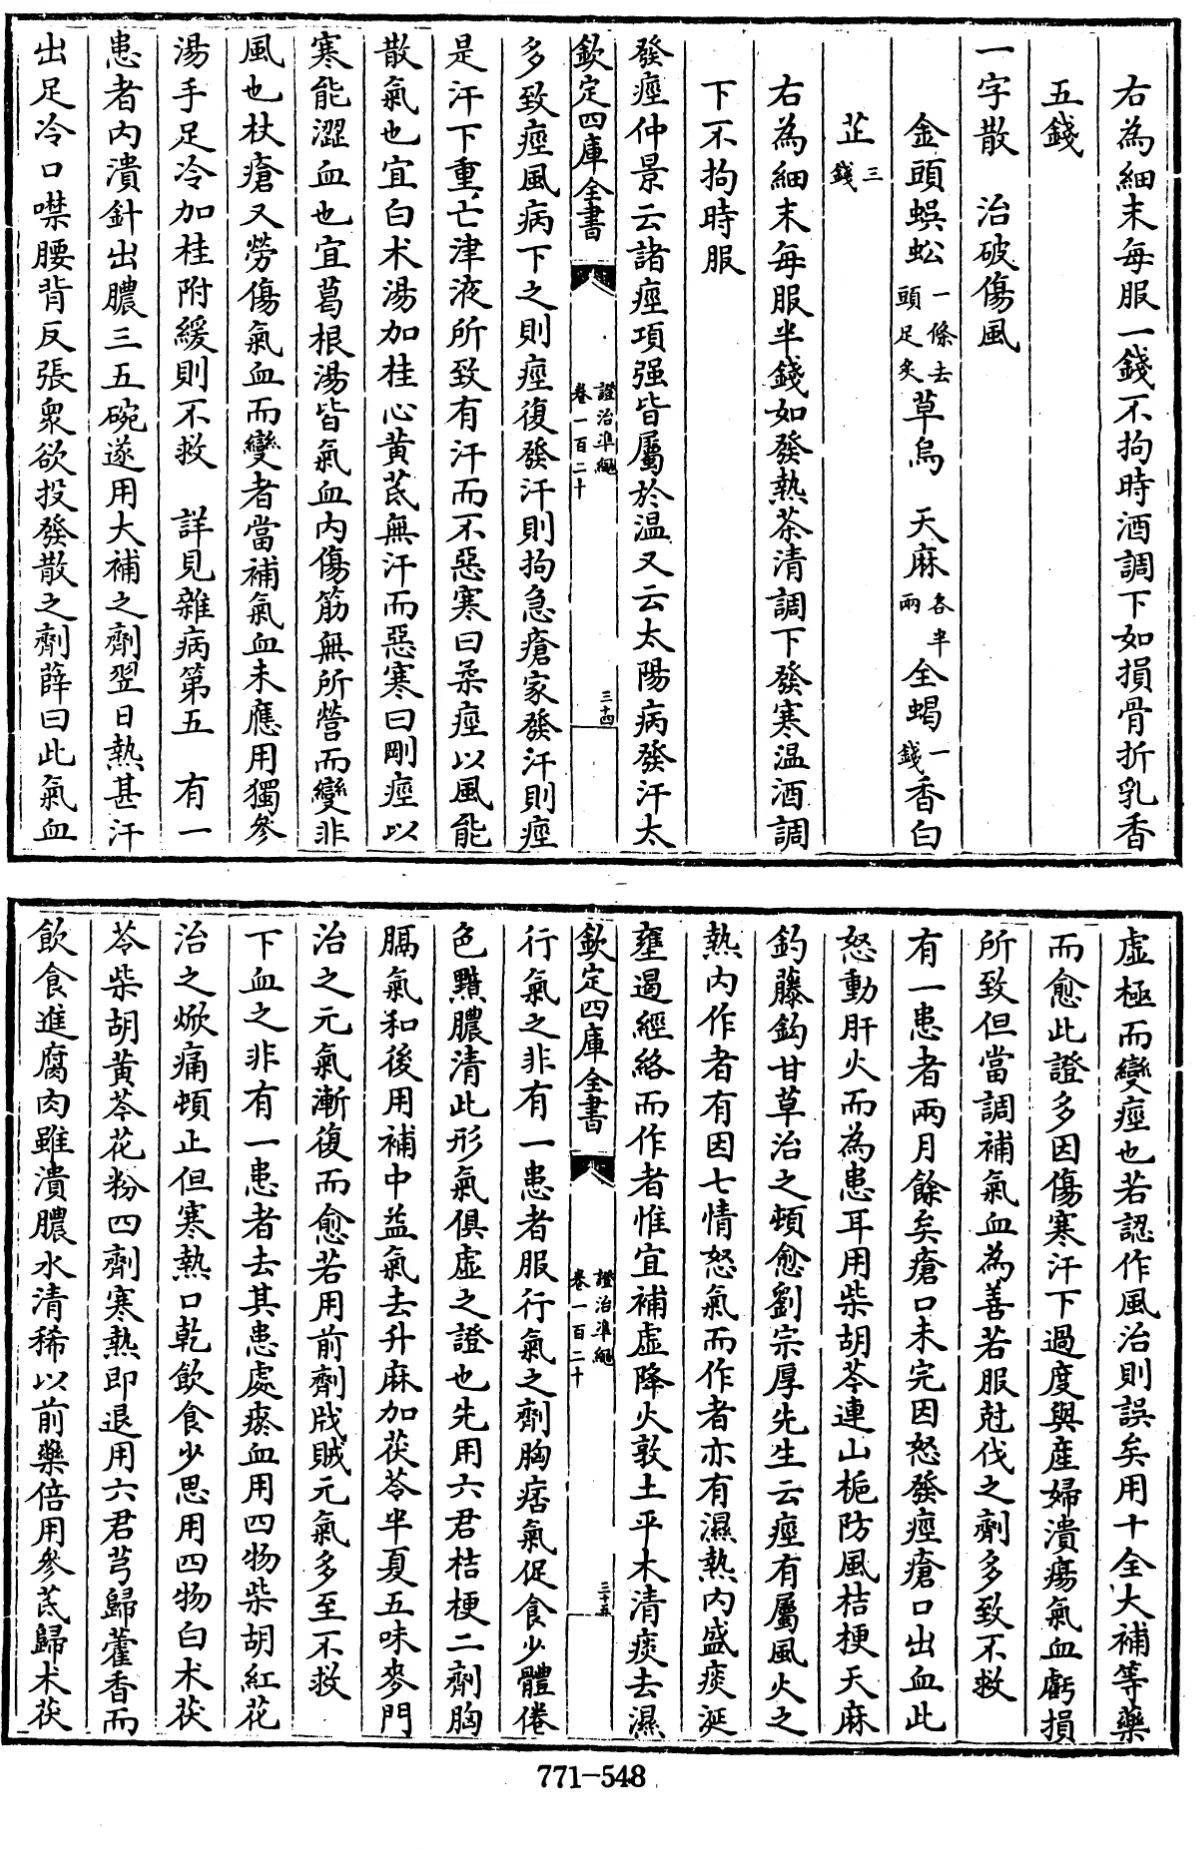 右為細末每服一錢不拘時酒調下如損骨折乳香
五錢
一字散　治破傷風
金頭蜈蚣一條去頭足炙草烏　天麻各半兩全蝎一錢香白
芷三錢
右為細末每服半錢如發熱茶清調下發寒温酒調
下不拘時服
發痙仲景云諸痙項强皆屬於温又云太陽病發汗太
欽定四庫全書
證治準繩
卷一百二十
三十四
多致痙風病下之則痙復發汗則拘急瘡家發汗則痙
是汗下重亡津液所致有汗而不惡寒曰柔痙以風能
散氣也宜白术湯加桂心黄芪無汗而惡寒曰剛痙以
寒能澀血也宜葛根湯皆氣血内傷筋無所營而變非
風也杖瘡又勞傷氣血而變者當補氣血未應用獨參
湯手足冷加桂附緩則不救　詳見雜病第五　有一
患者内潰針出膿三五碗遂用大補之劑翌日熱甚汗
出足冷口噤腰背反張衆欲投發散之劑薛曰此氣血
虛極而變痙也若認作風治則誤矣用十全大補等藥
而愈此證多因傷寒汗下過度與產婦潰瘍氣血虧損
所致但當調補氣血為善若服尅伐之劑多致不救
有一患者兩月餘矣瘡口未完因怒發痙瘡口出血此
怒動肝火而為患耳用柴胡芩連山梔防風桔梗天麻
釣藤鈎甘草治之頓愈劉宗厚先生云痙有屬風火之
熱内作者有因七情怒氣而作者亦有濕熱内盛痰涎
壅遏經絡而作者惟宜補虛降火敦土平木清痰去濕
欽定四庫全書
證治準繩
卷一百二十
三十五
行氣之非有一患者服行氣之劑胸痞氣促食少體倦
色黯膿清此形氣俱虛之證也先用六君桔梗二劑胸
膈氣和後用補中益氣去升麻加茯苓半夏五味麥門
治之元氣漸復而愈若用前劑戕賊元氣多至不救
下血之非有一患者去其患處瘀血用四物柴胡紅花
治之焮痛頓止但寒熱口乾飲食少思用四物白术茯
苓柴胡黄芩花粉四劑寒熱即退用六君芎歸藿香而
飲食進腐肉雖潰膿水清稀以前藥倍用參芪歸术茯
771-548